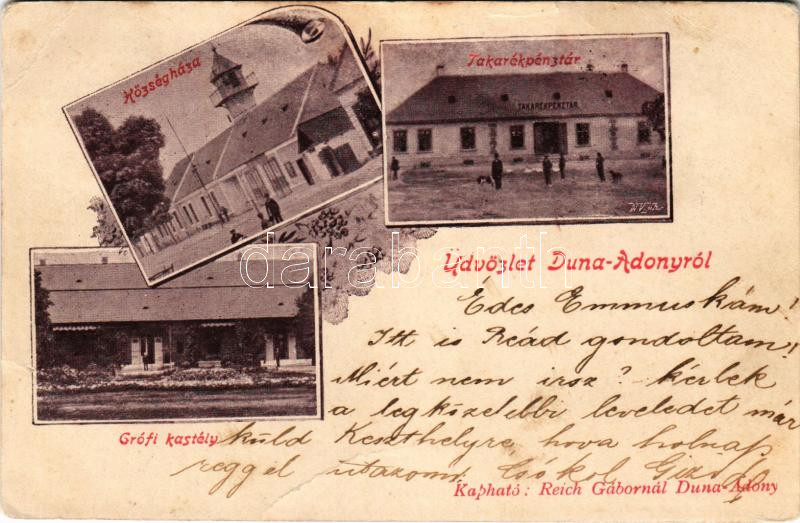 Községháza
Takarékpénztár
TAKARÉKPÉNZTÁR
darabanth
Üdvözlet Duna-Adonyról
Édes Emmuskám!
Itt is Reád gondoltam!
Miért nem irsz? kérlek
a legközelebbi leveledet már
Grófi kastély
küld Keszthelyre hova holnap
reggel utazom. Csókol Giza
Kapható: Reich Gábornál Duna-Adony